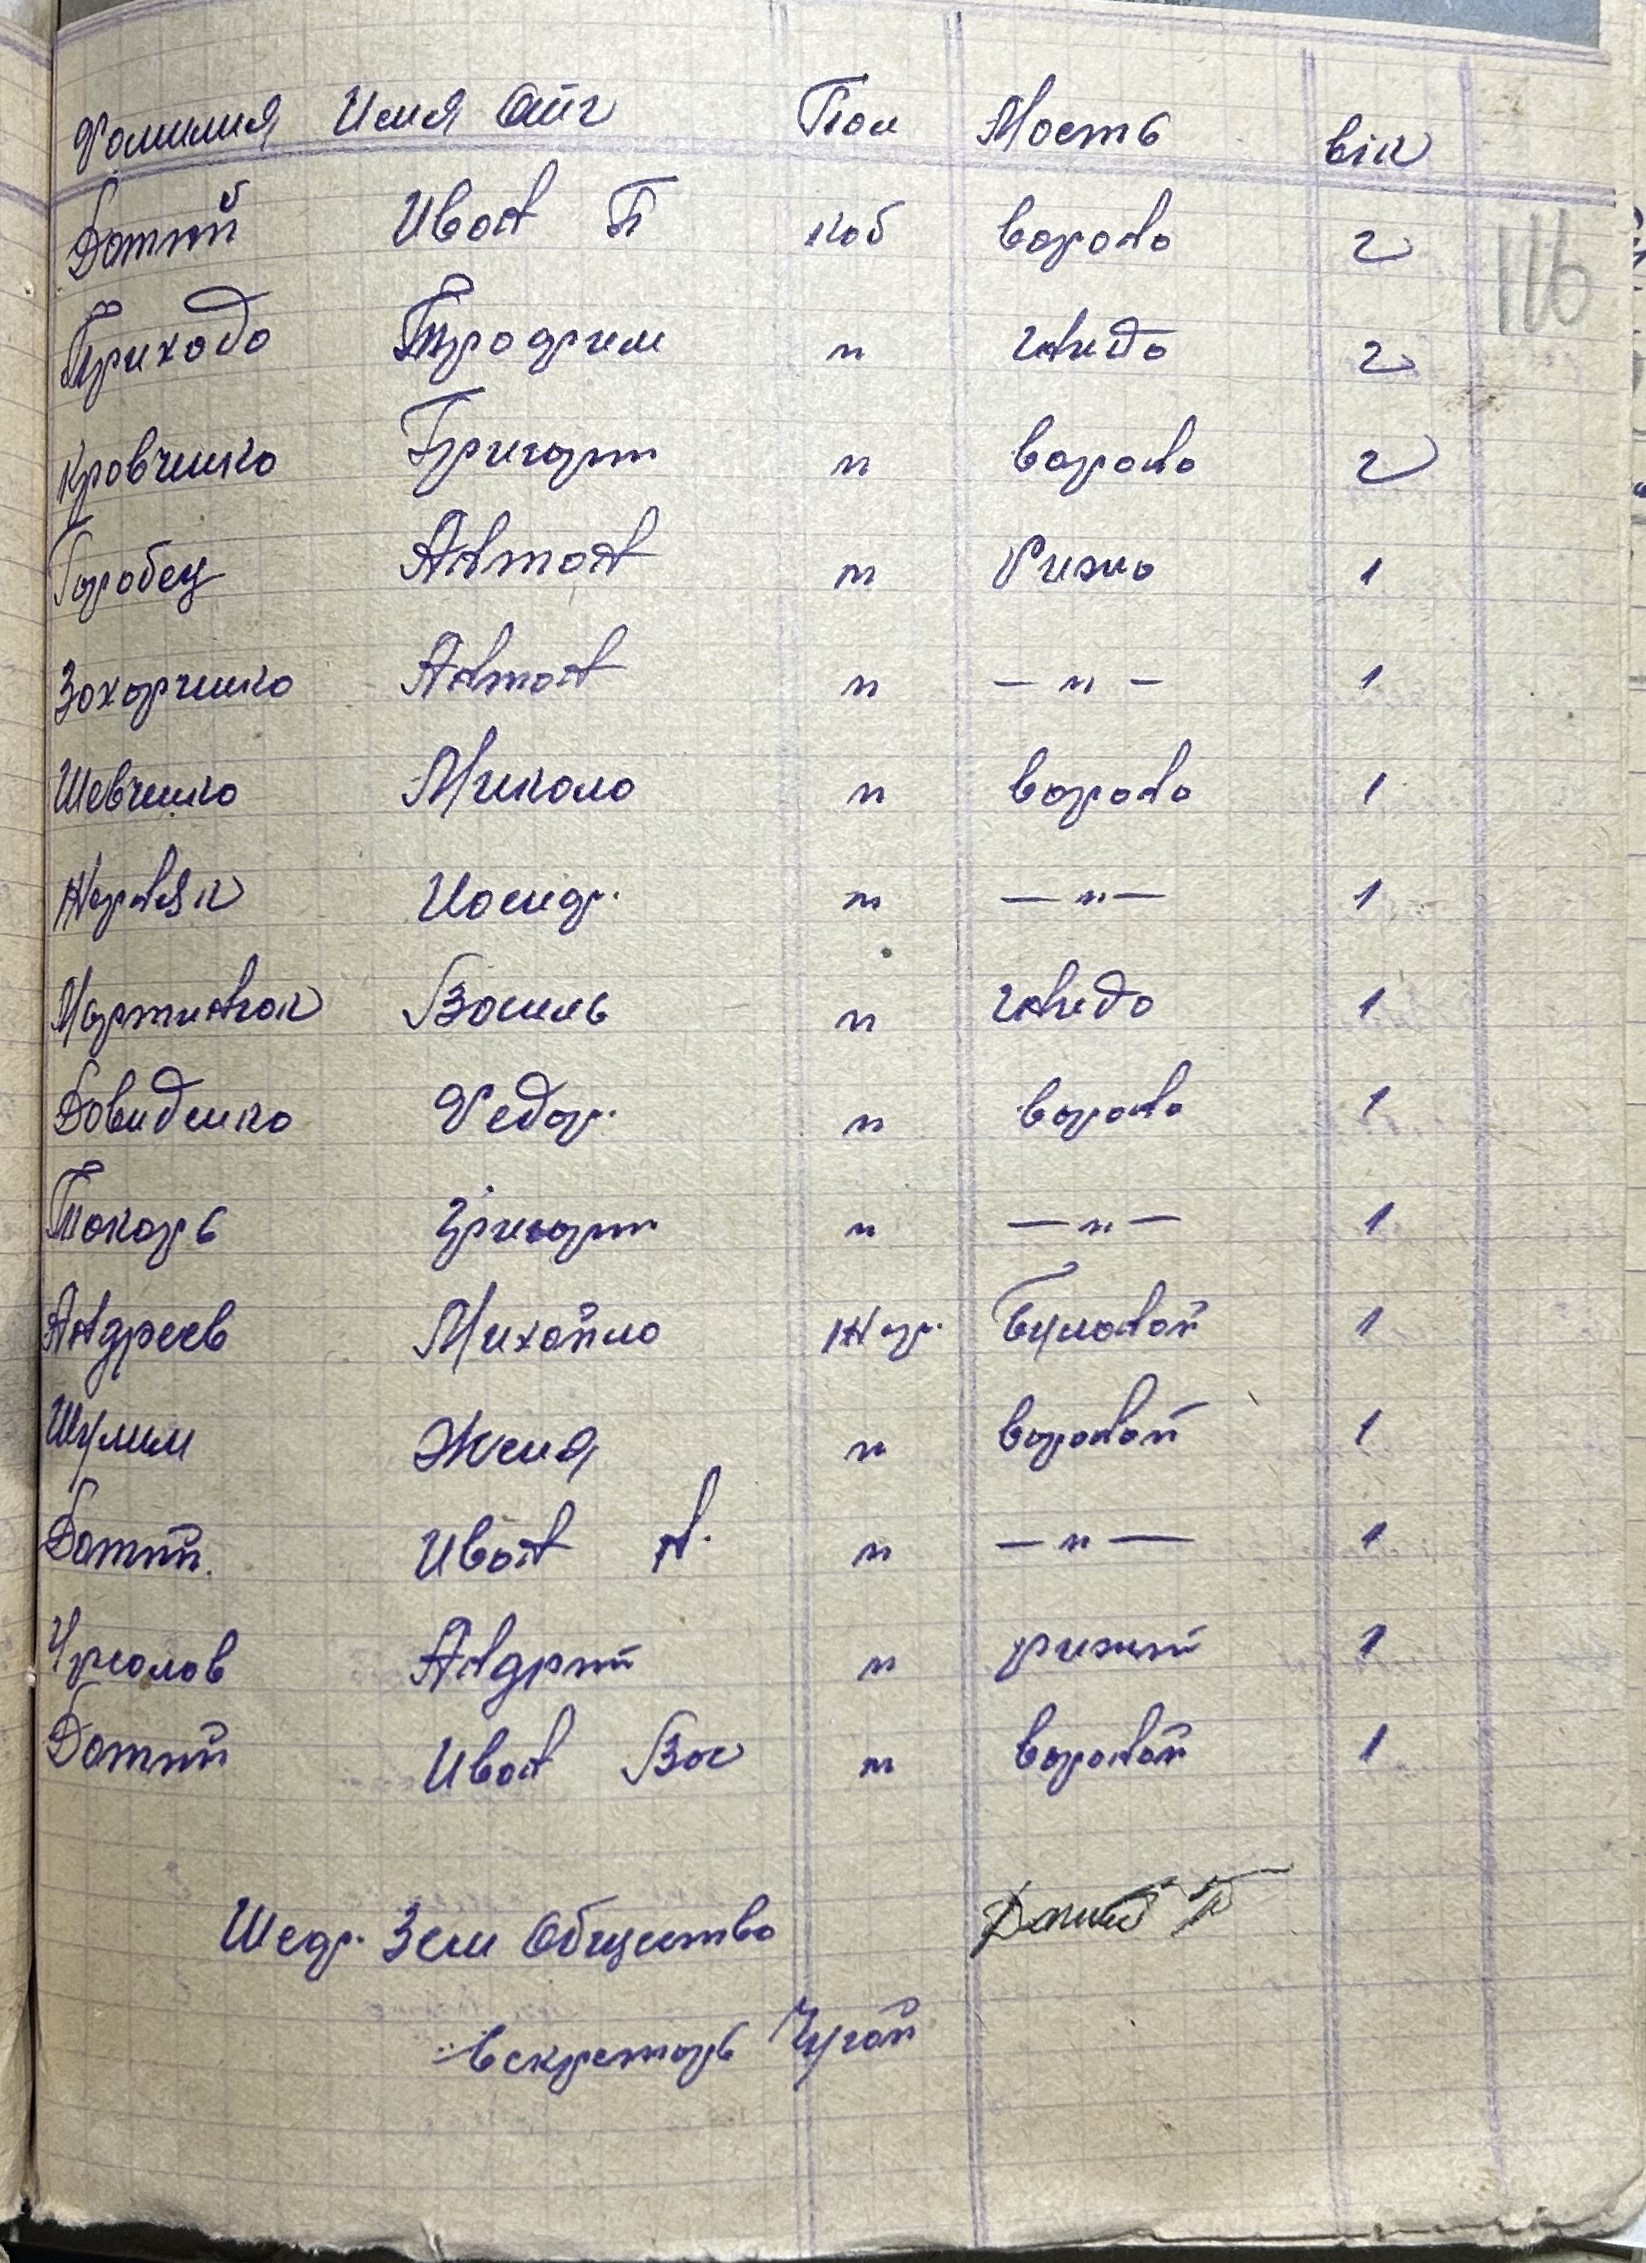 Фамилия Имя Отч Пол Масть вік
Датий Иван П коб ворона 2
Приходо Трофим " гнида 2
Кравченко Григорий " ворона 2
Горобец Антон " Рижа 1
Захарченко Антон " — " — 1
Шевченко Микола " ворона 1
Жерняк Иосифр. " — " — 1
Мартинюк Василь " гнида 1
Давиденко Федор. " ворона 1
Токарь Григорий " — " — 1
Андреев Михайло жер. Буланай 1
Шулим Женя " воронай 1
Датий. Иван А. " — " — 1
Андрий " рижий 1
Датий Иван Вас " воронай 1
116
Зем Общества
секретарь Чугай